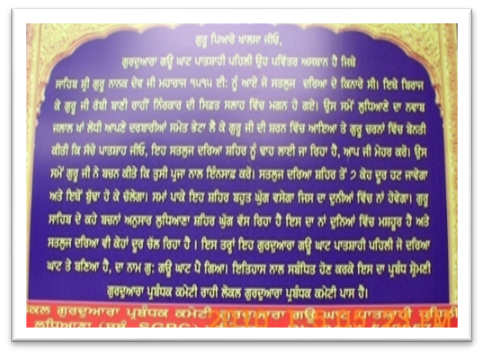 ਗੁਰੂ ਪਿਆਰੇ ਖਾਲਸਾ ਜੀਓ,
ਗੁਰਦੁਆਰਾ ਗਊ ਘਾਟ ਪਾਤਸ਼ਾਹੀ ਪਹਿਲੀ ਉਹ ਪਵਿੱਤਰ ਅਸਥਾਨ ਹੈ ਜਿਥੇ
ਸਾਹਿਬ ਸ਼੍ਰੀ ਗੁਰੂ ਨਾਨਕ ਦੇਵ ਜੀ ਮਹਾਰਾਜ ੧੫੧੫ ਈ: ਨੂੰ ਆਏ ਜੋ ਸਤਲੁਜ ਦਰਿਆ ਦੇ ਕਿਨਾਰੇ ਸੀ। ਇਥੇ ਬਿਰਾਜ
ਕੇ ਗੁਰੂ ਜੀ ਰੱਬੀ ਬਾਣੀ ਰਾਹੀਂ ਨਿਰੰਕਾਰ ਦੀ ਸਿਫ਼ਤ ਸਲਾਹ ਵਿੱਚ ਮਗਨ ਹੋ ਗਏ। ਉਸ ਸਮੇਂ ਲੁਧਿਆਣੇ ਦਾ ਨਵਾਬ
ਜਲਾਲ ਖਾਂ ਲੋਧੀ ਆਪਣੇ ਦਰਬਾਰੀਆਂ ਸਮੇਤ ਭੇਟਾ ਲੈ ਕੇ ਗੁਰੂ ਜੀ ਦੀ ਸ਼ਰਨ ਵਿੱਚ ਆਇਆ ਤੇ ਗੁਰੂ ਚਰਨਾਂ ਵਿੱਚ ਬੇਨਤੀ
ਕੀਤੀ ਕਿ ਸੱਚੇ ਪਾਤਸ਼ਾਹ ਜੀਓ, ਇਹ ਸਤਲੁਜ ਦਰਿਆ ਸ਼ਹਿਰ ਨੂੰ ਢਾਹ ਲਾਈ ਜਾ ਰਿਹਾ ਹੈ, ਆਪ ਜੀ ਮੇਹਰ ਕਰੋ। ਉਸ
ਸਮੇਂ ਗੁਰੂ ਜੀ ਨੇ ਬਚਨ ਕੀਤੇ ਕਿ ਤੁਸੀ ਪ੍ਰਜਾ ਨਾਲ ਇਨਸਾਫ਼ ਕਰੋ। ਸਤਲੁਜ ਦਰਿਆ ਸ਼ਹਿਰ ਤੋਂ ੭ ਕੋਹ ਦੂਰ ਹਟ ਜਾਵੇਗਾ
ਅਤੇ ਇਥੋਂ ਬੁੱਢਾ ਹੋ ਕੇ ਚੱਲੇਗਾ। ਸਮਾਂ ਪਾਕੇ ਇਹ ਸ਼ਹਿਰ ਬਹੁਤ ਘੁੱਗ ਵਸੇਗਾ ਜਿਸ ਦਾ ਦੁਨੀਆਂ ਵਿੱਚ ਨਾਂ ਹੋਵੇਗਾ। ਗੁਰੂ
ਸਾਹਿਬ ਦੇ ਕਹੇ ਬਚਨਾਂ ਅਨੁਸਾਰ ਲੁਧਿਆਣਾ ਸ਼ਹਿਰ ਘੁੱਗ ਵੱਸ ਰਿਹਾ ਹੈ ਇਸ ਦਾ ਨਾਂ ਦੁਨਿਆਂ ਵਿੱਚ ਮਸ਼ਹੂਰ ਹੈ ਅਤੇ
ਸਤਲੁਜ ਦਰਿਆ ਵੀ ਕੋਹਾਂ ਦੂਰ ਚੱਲ ਰਿਹਾ ਹੈ । ਇਸ ਤਰ੍ਹਾਂ ਇਹ ਗੁਰਦੁਆਰਾ ਗਊ ਘਾਟ ਪਾਤਸ਼ਾਹੀ ਪਹਿਲੀ ਜੋ ਦਰਿਆ
ਘਾਟ ਤੇ ਬਣਿਆ ਹੈ, ਦਾ ਨਾਮ ਗੁ: ਗਊ ਘਾਟ ਪੈ ਗਿਆ। ਇਤਿਹਾਸ ਨਾਲ ਸਬੰਧਿਤ ਹੋਣ ਕਰਕੇ ਇਸ ਦਾ ਪ੍ਰਬੰਧ ਸ਼੍ਰੋਮਣੀ
ਗੁਰਦੁਆਰਾ ਪ੍ਰਬੰਧਕ ਕਮੇਟੀ ਰਾਹੀ ਲੋਕਲ ਗੁਰਦੁਆਰਾ ਪ੍ਰਬੰਧਕ ਕਮੇਟੀ ਪਾਸ ਹੈ।
ਲੋਕਲ ਗੁਰਦੁਆਰਾ ਪ੍ਰਬੰਧਕ ਕਮੇਟੀ ਗੁਰਦੁਆਰਾ ਗਊ ਘਾਟ ਪਾਤਸ਼ਾਹੀ ਪਹਿਲੀ
ਲੁਧਿਆਣਾ